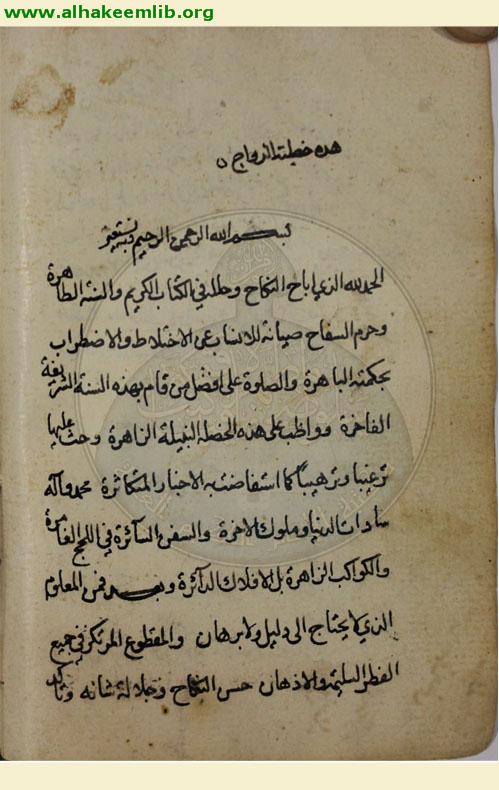 www.alhakeemlib.org
هذه خطبة الزواج
بسم الله الرحمن الرحيم وبه نستعين
الحمد لله الذي اباح النكاح وحلله في الكتاب الكريم والسنة الطاهرة
وحرم السفاح صيانة للانساب عن الاختلاط والاضطراب
بحكمته الباهرة والصلوة على افضل من قام بهذه السنة الشريفة
الفاخرة وواظب على هذه الخصلة النبيلة الزاهرة وحث عليها
ترغيبا وترهيباً كما استفاضت به الاخبار المتكاثرة محمد وآله
سادات الدنيا وملوك الاخرة والسفن السآئرة في اللجج الغامرة
والكواكب الزاهرة بل الافلاك الدآئرة وبعد فمن المعلوم
الذي لا يحتاج الى دليل ولا برهان والمقطوع المرتكز في جميع
الفطر السليمة والاذهان حسن النكاح وجلالة شانه وتأكد